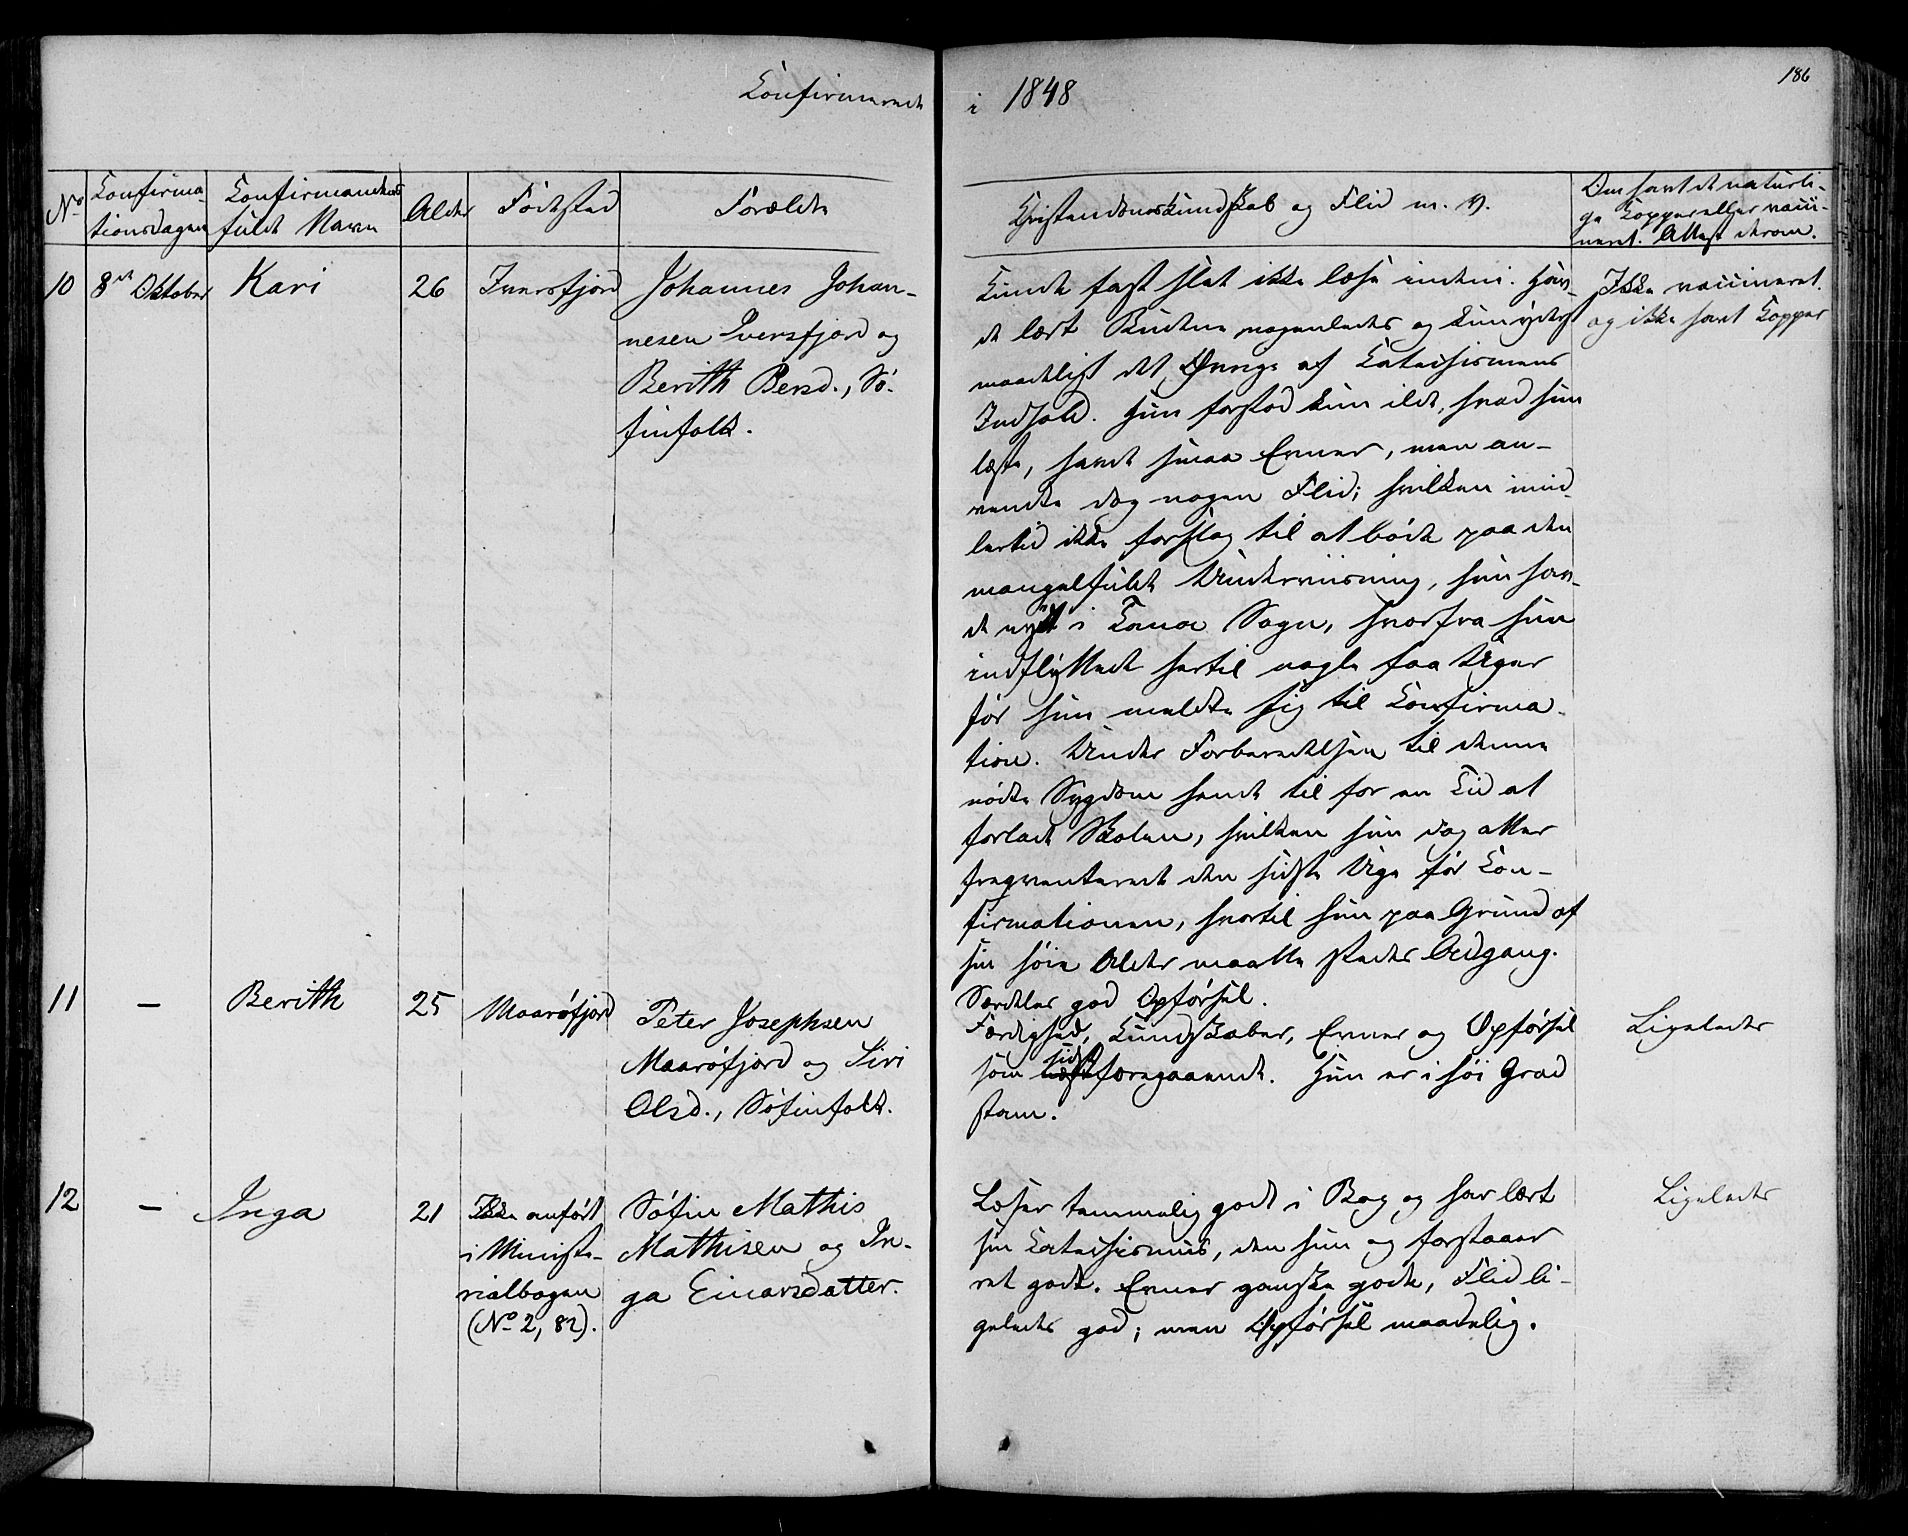 Confirmerede i 1848
186
No
Confirma-
tionsdagen
Confirmandens
fulde Navn
Alder
Födested
Forældre
Christendomskundskab og Flid m. V.
Om havt de naturli-
ge Kopper eller vacci-
neret. Attest derom.
10
8de Oktober
Kari
26
Iversfjord
Johannes Johan-
nesen Iversfjord og
Berith Persd., Sö-
finfolk.
Kunde fast slet ikke læse indeni. Hav-
de lært Budene nogenledes og kun yderst
maadeligt det Övrige af Katechismens
Indhold. Hun forstod kun ildt, hvad hun
læste, havde smaa Evner, men an-
vendte dog nogen Flid; hvilken imid-
lertid ikke forslog til at böde paa den
mangelfulde Underviisning, hun hav-
de nydt i Tana Sogn, hvorfra hun
indflyttede hertil nogle faa Uger
för hun meldte sig til Confirma-
tion. Under Forberedelsen til denne
nödte Sygdom hende til for en Tid at
forlade Skolen, hvilken hun dog atter
freqventerede den sidste Uge för Con-
firmationen, hvortil hun paa Grund af
sin höie Alder maatte stedes Adgang.
Særdeles god Opförsel.
Ikke vaccineret
og ikke havt Kopper
11
–
Berith
25
Maaröfjord
Peter Josephsen
Maaröfjord og Siri
Olsd., Söfinfolk.
Færdighed, Kundskaber, Evner og Opförsel
som sidst foregaaende. Hun er i höi Grad
stam.
Ligeledes
12
–
Inga
21
Ikke anfört
i Ministe-
rialbogen
(No 2, 82).
Söfin Mathis
Mathisen og In-
ga Einarsdatter.
Læser temmelig godt i Bog og har lært
sin Catechismus, den hun og forstaaer
ret godt. Evner ganske gode, Flid li-
geledes god; men Opförsel maadelig.
Ligeledes